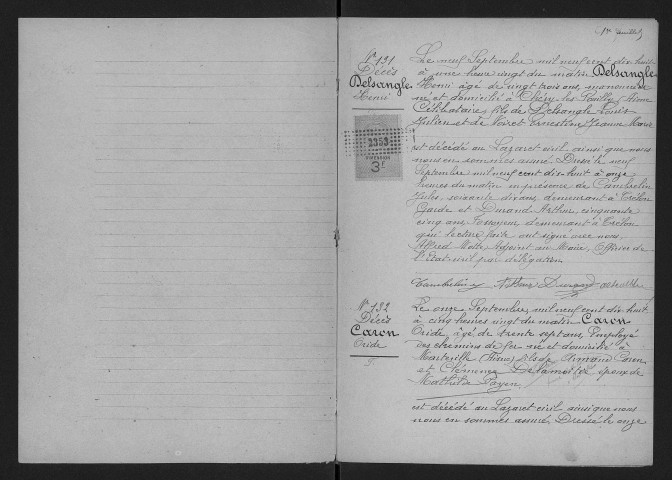 (1er feuillet)
No 131
Décès
Delsangle
Henri
2353
DIMENSION
3F
Le neuf Septembre mil neuf cent dix huit
à une heure vingt du matin Delsangle
Henri âgé de vingt trois ans, manoeuvre
né et domicilié à Chéry les Pouilly Aisne
Célibataire fils de Delsangle Louis
Julien et de Voiret Ernestine Jeanne Marie
est décédé au Lazaret civil ainsi que nous
nous en sommes assuré. Dressé le neuf
Septembre mil neuf cent dix-huit à onze
heures du matin en présence de Cambrelin
Jules, soixante dix ans, demeurant à Trélon
Garde et Durand Arthur, cinquante
cinq ans, Fossoyeur demeurant à Trélon
qui lecture faite ont signé avec nous
Alfred Motte Adjoint au Maire, Officier de
l'état-civil par délégation
Cambrelin J Arthur Durand
No 132
Décès
Caron
Oride
Le onze Septembre mil neuf cent dix huit
à cinq heures vingt du matin Caron
Oride, âgé de trente sept ans, Employé
des chemins de fer né et domicilié à
Marteville (Aisne) fils de Armand Caron
et Clémence Delamotte époux de
Mathilde Payen
est décédé au Lazaret civil ainsi que nous
nous en sommes assuré. Dressé le onze